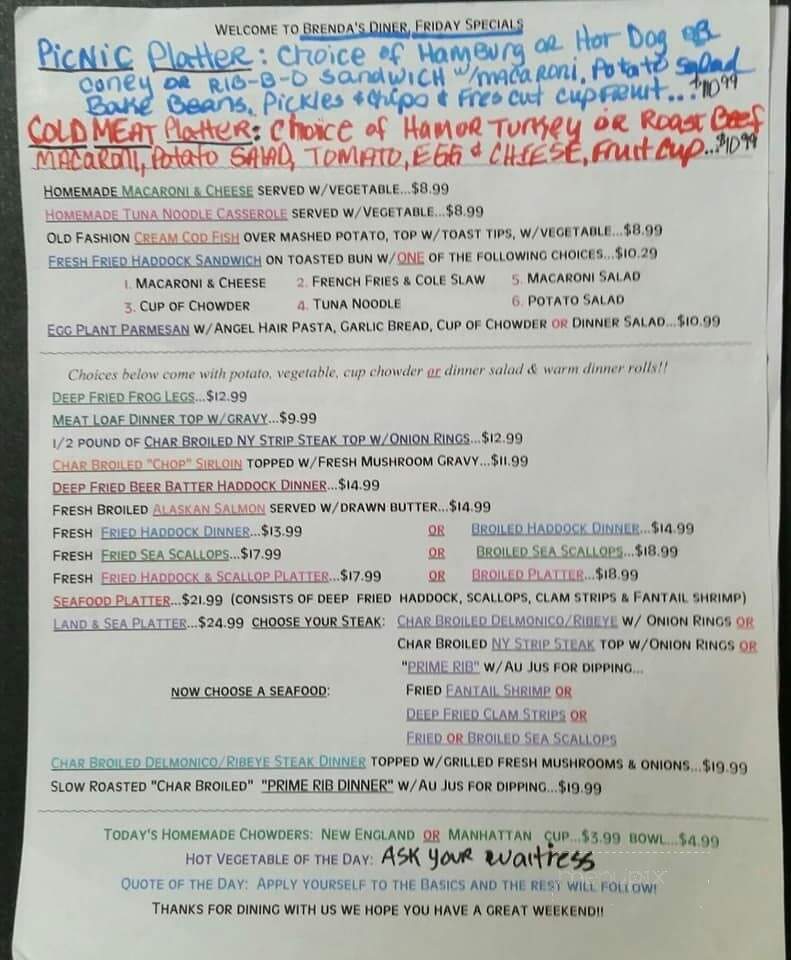 Welcome to Brenda's Diner, Friday Specials
PiCNiC Platter: Choice of Hamburg or Hot Dog or
Coney or RIB-B-Q Sandwich w/macaroni, Potato Salad
Bake Beans, Pickles & Chips & Fres cut cup Fruit...$10.99
COLD MEAT Platter: Choice of Ham or Turkey or Roast Beef
MACARONI, Potato SALAD, TOMATO, EGG & CHEESE, Fruit Cup...$10.99
Homemade Macaroni & Cheese served w/vegetable...$8.99
Homemade Tuna Noodle Casserole served w/Vegetable...$8.99
Old Fashion Cream Cod Fish over mashed potato, top w/toast tips, w/vegetable...$8.99
Fresh Fried Haddock Sandwich on toasted bun w/one of the following choices...$10.29
1. Macaroni & Cheese 2. French Fries & Cole Slaw 5. Macaroni Salad
3. Cup of Chowder 4. Tuna Noodle 6. Potato Salad
Egg Plant Parmesan w/Angel Hair Pasta, Garlic Bread, Cup of Chowder or Dinner Salad...$10.99
Choices below come with potato, vegetable, cup chowder or dinner salad & warm dinner rolls!!
Deep Fried Frog Legs...$12.99
Meat Loaf Dinner top w/gravy...$9.99
1/2 pound of Char Broiled NY Strip Steak top w/Onion Rings...$12.99
Char Broiled "Chop" Sirloin topped w/Fresh Mushroom Gravy...$11.99
Deep Fried Beer Batter Haddock Dinner...$14.99
Fresh Broiled Alaskan Salmon served w/drawn butter...$14.99
Fresh Fried Haddock Dinner...$13.99 or Broiled Haddock Dinner...$14.99
Fresh Fried Sea Scallops...$17.99 or Broiled Sea Scallops...$18.99
Fresh Fried Haddock & Scallop Platter...$17.99 or Broiled Platter...$18.99
Seafood Platter...$21.99 (consists of deep fried haddock, scallops, clam strips & fantail shrimp)
Land & Sea Platter...$24.99 Choose your Steak: Char Broiled Delmonico/Ribeye w/ Onion Rings or
Char Broiled NY Strip Steak top w/Onion Rings or
"Prime Rib" w/Au Jus for dipping...
Now choose a Seafood: Fried Fantail Shrimp or
Deep Fried Clam Strips or
Fried or Broiled Sea Scallops
Char Broiled Delmonico/Ribeye Steak Dinner topped w/grilled fresh mushrooms & onions...$19.99
Slow Roasted "Char Broiled" "Prime Rib Dinner" w/Au Jus for dipping...$19.99
Today's Homemade Chowders: New England or Manhattan cup...$3.99 bowl...$4.99
Hot Vegetable of the Day: ASK your waitress
Quote of the Day: Apply yourself to the Basics and the rest will follow!
Thanks for dining with us we hope you have a great weekend!!
menupix